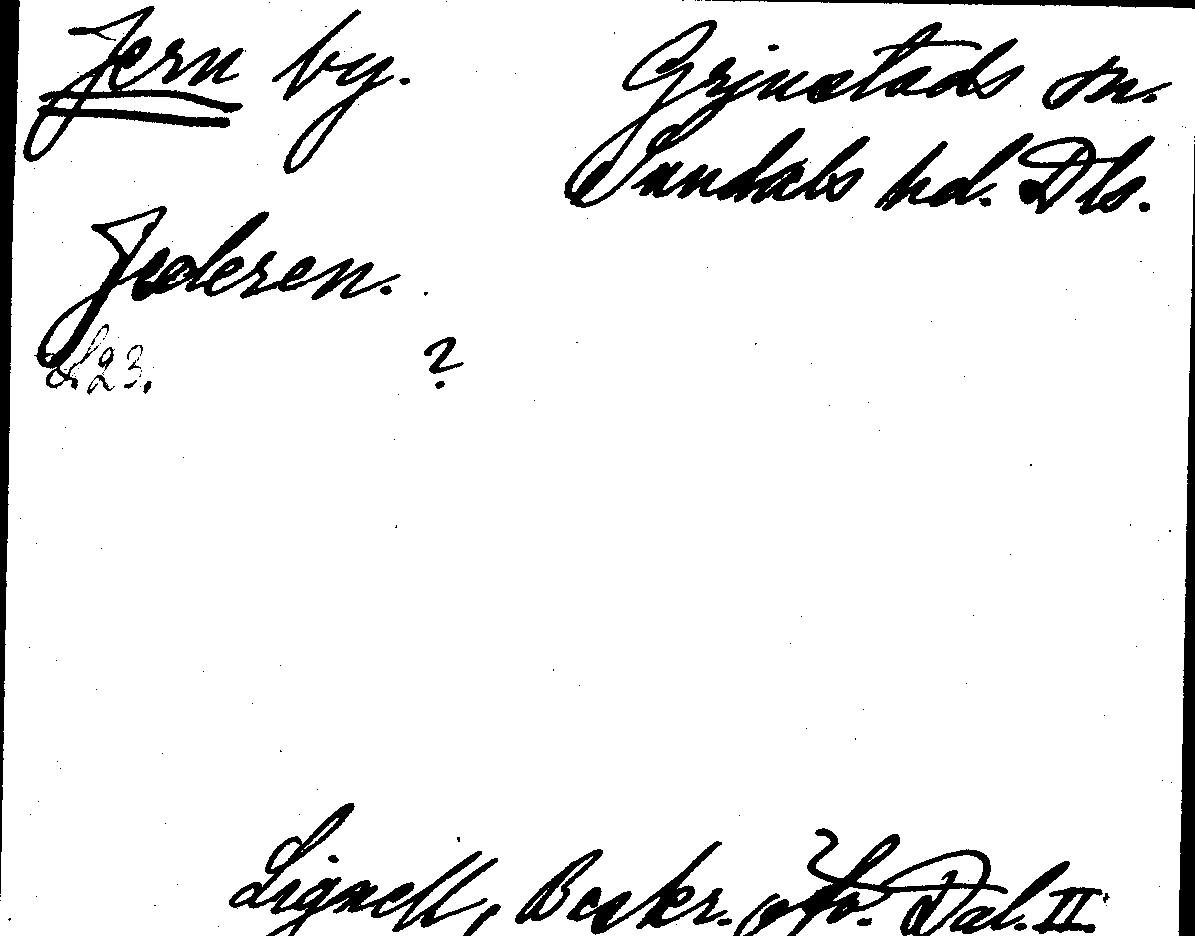 Jern by. Grinstads sn.
Sundals hd. Dls.
Jederen.
S. 23. ?
Lignell, Beskr. öfv. Dal. II.